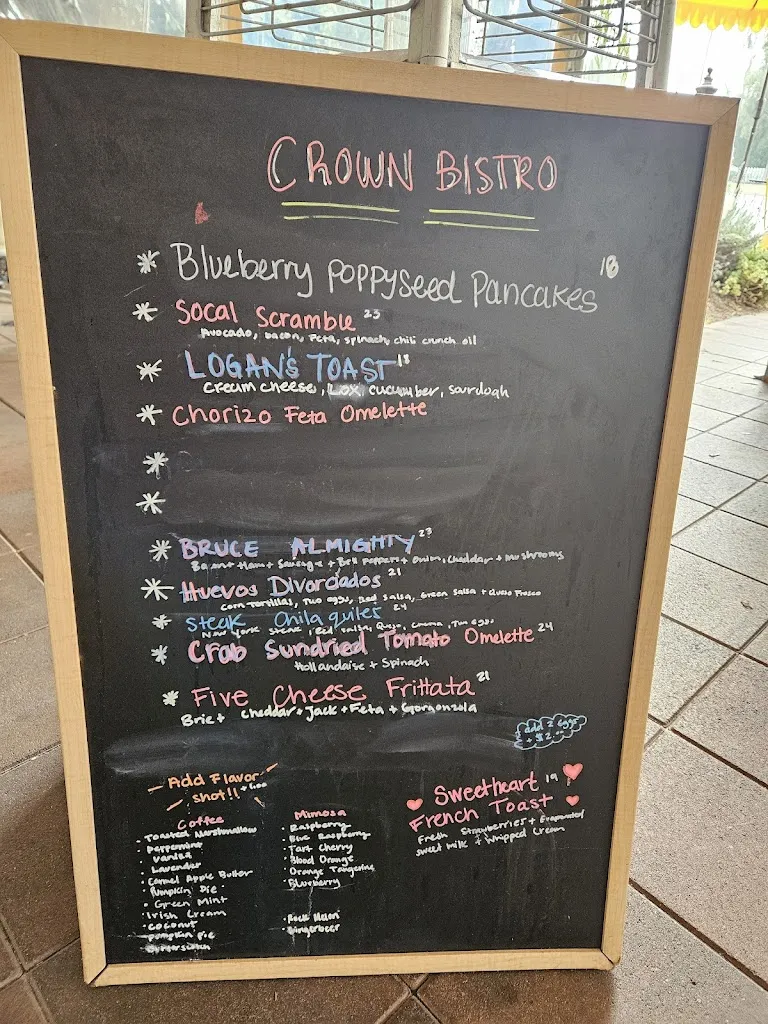 CROWN BISTRO
* Blueberry Poppyseed Pancakes 18
* Socal Scramble 23
Avocado, bacon, Feta, spinach, chili crunch oil
* LOGAN'S TOAST 18
cream cheese, Lox, cucumber, sourdogh
* Chorizo Feta Omelette
*
*
* BRUCE ALMIGHTY 23
Bacon + Ham + Sausage + Bell Peppers + Onion, Cheddar + Mushrooms
* Huevos Divordados 21
Corn Tortillas, Two eggs, Red Salsa, Green Salsa + Queso Fresco
* Steak Chilaquiles 24
New York Steak, red salsa, Queso, Crema, Two eggs
* Crab Sundried Tomato Omelette 24
Hollandaise + Spinach
* Five Cheese Frittata 21
Brie + cheddar + Jack + Feta + Gorgonzola
add 2 eggs
+ $2.00
Add Flavor
shot!!
Coffee
· Toasted Marshmallow
· Peppermint
· Vanilla
· Lavender
· Carmel Apple Butter
· Pumpkin Pie
· Green Mint
· Irish Cream
· Coconut
· Pumpkin Pie
· Butterscotch
Mimosa
· Raspberry
· Blue Raspberry
· Tart Cherry
· Blood Orange
· Orange Tangerine
· Blueberry
· Rock Melon
· Gingerbeer
Sweetheart 19
French Toast
Fresh Strawberries + Evaporated
sweet milk + whipped Cream